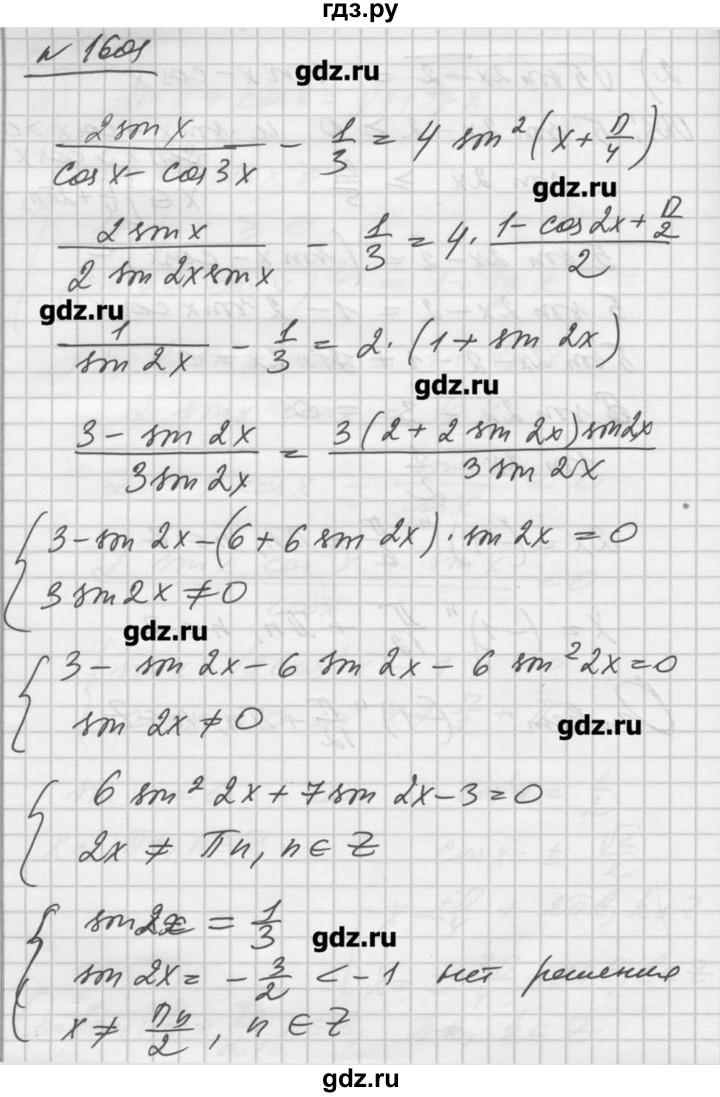 гдз.ру
№ 1601
gdz.ru
2 sin x / (cos x - cos 3x) - 1/3 = 4 sin²(x + П/4)
gdz.ru
2 sin x / (2 sin 2x sin x) - 1/3 = 4 · (1 - cos 2x + П/2) / 2
gdz.ru
1 / sin 2x - 1/3 = 2 · (1 + sin 2x)
gdz.ru
(3 - sin 2x) / (3 sin 2x) = 3(2 + 2 sin 2x) sin 2x / (3 sin 2x)
3 - sin 2x - (6 + 6 sin 2x) · sin 2x = 0
3 sin 2x ≠ 0
gdz.ru
3 - sin 2x - 6 sin 2x - 6 sin² 2x = 0
sin 2x ≠ 0
gdz.ru
6 sin² 2x + 7 sin 2x - 3 = 0
2x ≠ Пn, n ∈ Z
sin 2x = 1/3
gdz.ru
sin 2x = - 3/2 < -1 нет решения
x ≠ Пn/2, n ∈ Z
gdz.ru